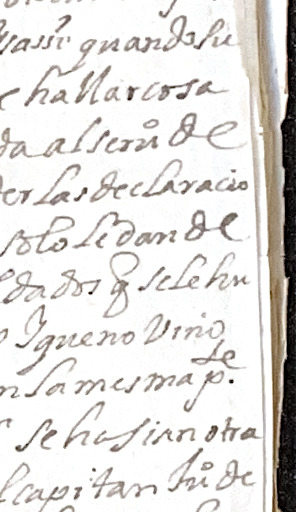 quando su
hallar cosa
da al seru.º de
las declaracio
solo le dan de
dados q se le hu
y gueno Vino
en la mesma p.te
se ha sin otra
capitan Ju.º de